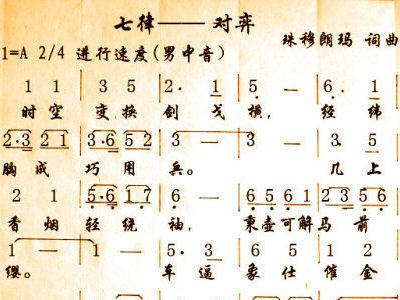 七律——对弈
珠穆朗玛 词曲
1=A 2/4 进行速度(男中音)
1 1 | 3 5 | 2· 1 | 5 — | 6· 1
时空 变换 剑戈横, 经纬
2·3 2 1 | 3·6 5 2 | 3 — | 3 — | 3· 5
胸成 巧用 兵。 几上
2 1 | 5·6 1 7 | 6 — | 6 5 6 1 | 2 3 5 6
香烟 轻绕 袖, 秉壶可解 马前
1 — | 1 — | 5· 3 | 6 5 | 1 2
缨。 车逼 象仕 惟金